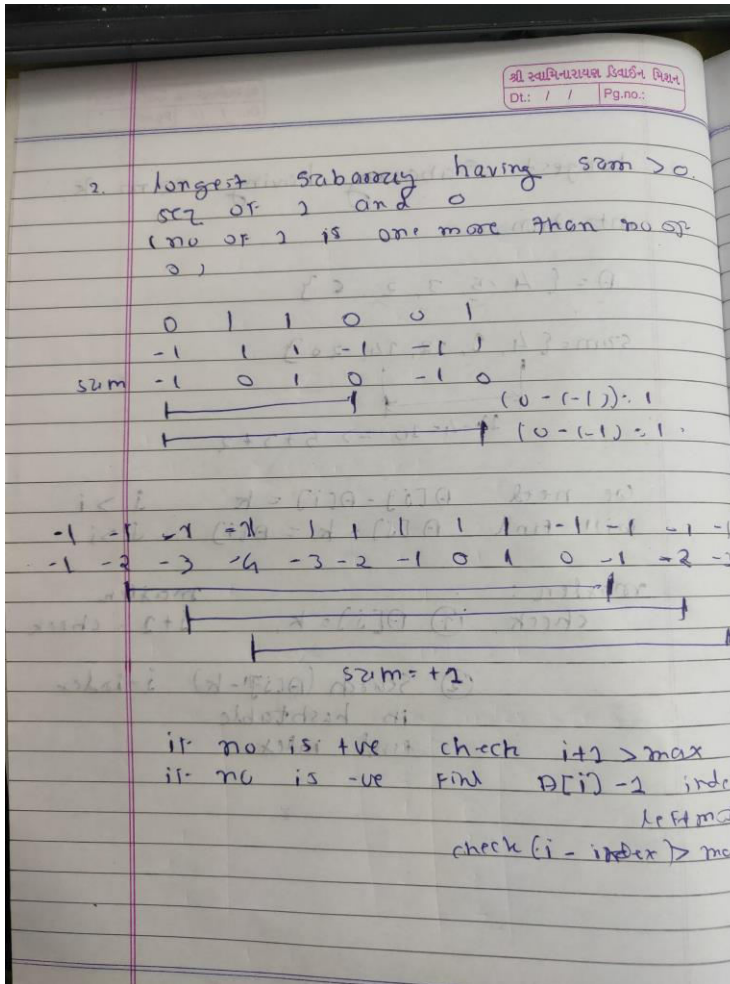 શ્રી સ્વામિનારાયણ ડિવાઈન મિશન
Dt.: / / Pg.no.:
2. longest subarray having sum > 0.
seq of 1 and 0
(no of 1 is one more than no of
0)
0 1 1 0 0 1
-1 1 1 -1 -1 1
sum -1 0 1 0 -1 0
(0 - (-1)) = 1
(0 - (-1) = 1.
-1 -1 -1 -1 1 1 1 1 1 -1 -1 -1 -1
-1 -2 -3 -4 -3 -2 -1 0 1 0 -1 -2 -3
sum = +1.
if no is +ve check i+1 > max
if no is -ve find A[i] -1 inde
leftmo
check (i - index) > mo